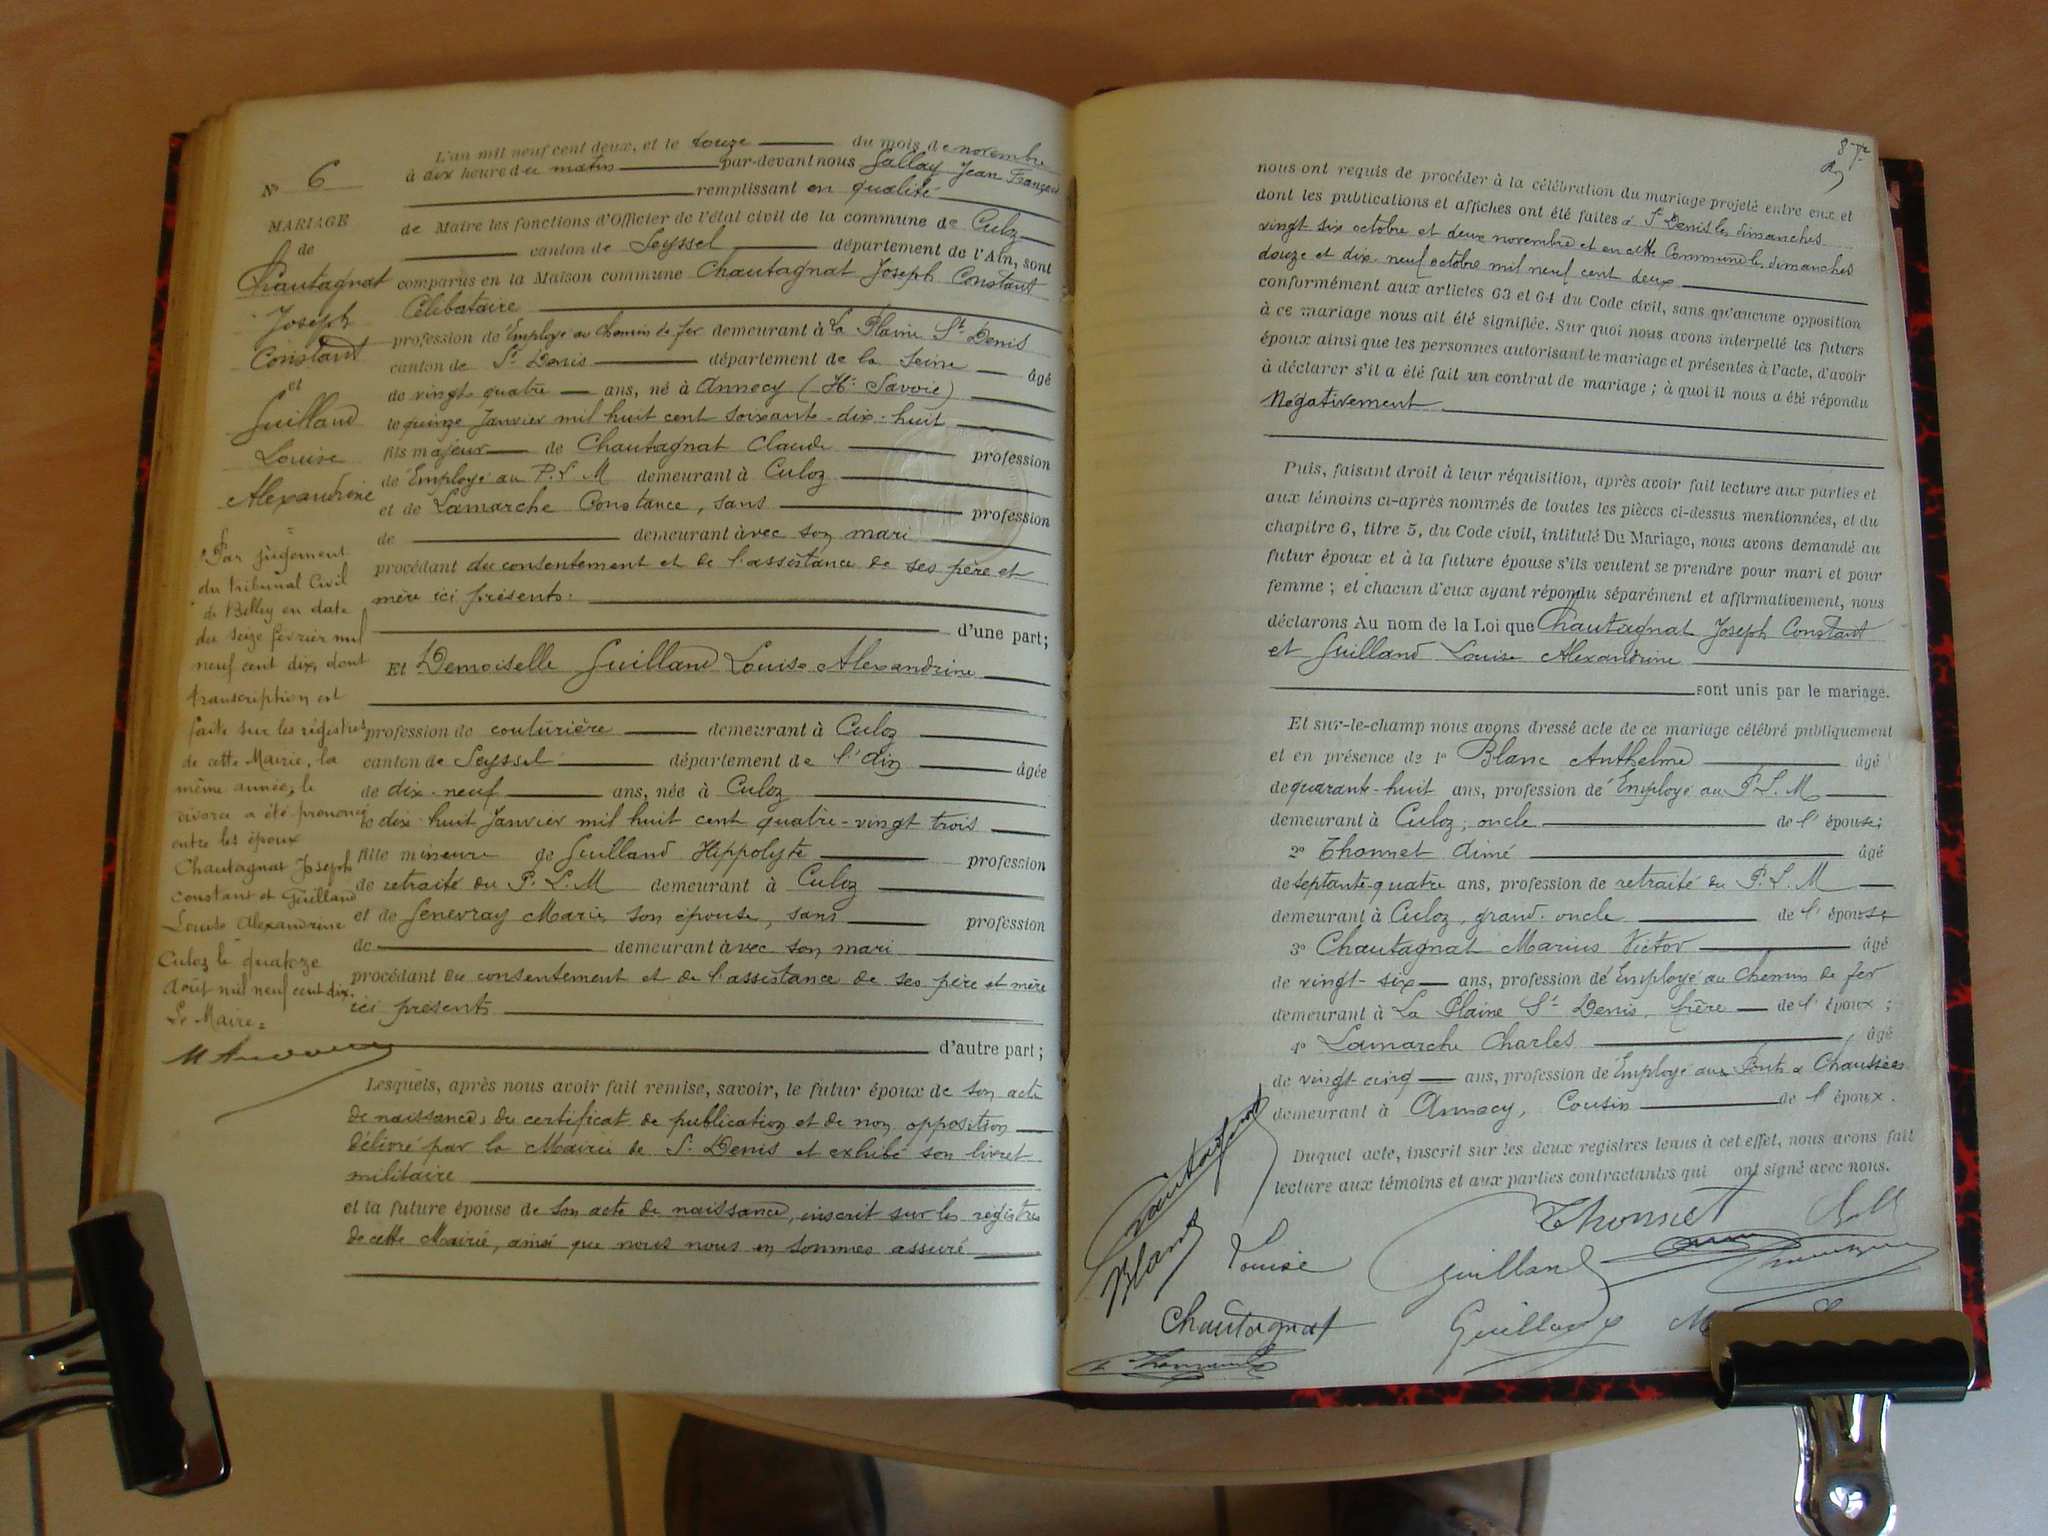 N° 6
MARIAGE
de
Chautagnat
Joseph
Constant
et
Guilland
Louise
Alexandrine
Par jugement
du tribunal Civil
de Belley en date
du seize février mil
neuf cent dix, dont
transcription est
faite sur les régistres
de cette Mairie, la
même année, le
divorce a été prononcé
entre les époux
Chautagnat Joseph
Constant et Guilland
Louise Alexandrine
Culoz le quatorze
août mil neuf cent dix.
Le Maire =
L'an mil neuf cent deux, et le douze du mois de novembre
à dix heure du matin par-devant nous Gallay Jean François
remplissant en qualité
de Maire les fonctions d'Officier de l'état civil de la commune de Culoz
canton de Seyssel département de l'Ain, sont
comparus en la Maison commune Chautagnat Joseph Constant
Célibataire
profession de Employé au chemin de fer demeurant à La Plaine St Denis
canton de St Denis département de la Seine âgé
de vingt quatre ans, né à Annecy (Hte Savoie)
le quinze Janvier mil huit cent soixante-dix-huit
fils majeur de Chautagnat Claude profession
de Employé au P. L. M demeurant à Culoz
et de Lamarche Constance, sans profession
de demeurant avec son mari
procédant du consentement et de l'assistance de ses père et
mère ici présents:
d'une part;
Et Demoiselle Guilland Louise Alexandrine
profession de couturière demeurant à Culoz
canton de Seyssel département de l'Ain âgée
de dix-neuf ans, née à Culoz
le dix-huit Janvier mil huit cent quatre-vingt trois
fille mineure de Guilland Hippolyte profession
de retraité du P. L. M demeurant à Culoz
et de Genevray Marie son épouse, sans profession
de demeurant avec son mari
procédant du consentement et de l'assistance de ses père et mère
ici présents
d'autre part;
Lesquels, après nous avoir fait remise, savoir, le futur époux de son acte
de naissance, du certificat de publication et de non opposition
délivré par la Mairie de St Denis et exhibé son livret
militaire
et la future épouse de son acte de naissance, inscrit sur les régistres
de cette Mairie, ainsi que nous nous en sommes assuré
nous ont requis de procéder à la célébration du mariage projeté entre eux et
dont les publications et affiches ont été faites à St Denis les dimanches
vingt six octobre et deux novembre et en cette Commune les dimanches
douze et dix-neuf octobre mil neuf cent deux
conformément aux articles 63 et 64 du Code civil, sans qu'aucune opposition
à ce mariage nous ait été signifiée. Sur quoi nous avons interpellé les futurs
époux ainsi que les personnes autorisant le mariage et présentes à l'acte, d'avoir
à déclarer s'il a été fait un contrat de mariage; à quoi il nous a été répondu
Négativement
Puis, faisant droit à leur réquisition, après avoir fait lecture aux parties et
aux témoins ci-après nommés de toutes les pièces ci-dessus mentionnées, et du
chapitre 6, titre 5, du Code civil, intitulé Du Mariage, nous avons demandé au
futur époux et à la future épouse s'ils veulent se prendre pour mari et pour
femme; et chacun d'eux ayant répondu séparément et affirmativement, nous
déclarons Au nom de la Loi que Chautagnat Joseph Constant
et Guilland Louise Alexandrine
sont unis par le mariage.
Et sur-le-champ nous avons dressé acte de ce mariage célébré publiquement
et en présence de 1° Blanc Anthelme âgé
de quarante-huit ans, profession de Employé au P. L. M
demeurant à Culoz, oncle de l'épouse;
2° Thonnet Aimé âgé
de septante-quatre ans, profession de retraité du P. L. M
demeurant à Culoz, grand-oncle de l'épouse
3° Chautagnat Marius Victor âgé
de vingt-six ans, profession de Employé au Chemin de fer
demeurant à La Plaine St Denis, frère de l'époux;
4° Lamarche Charles âgé
de vingt-cinq ans, profession de Employé aux Ponts & Chaussées
demeurant à Annecy, Cousin de l'époux.
Duquel acte, inscrit sur les deux registres tenus à cet effet, nous avons fait
lecture aux témoins et aux parties contractantes qui ont signé avec nous.
Chautagnat
Thonnet
Blanc
Louise Guilland
Chautagnat
Guilland